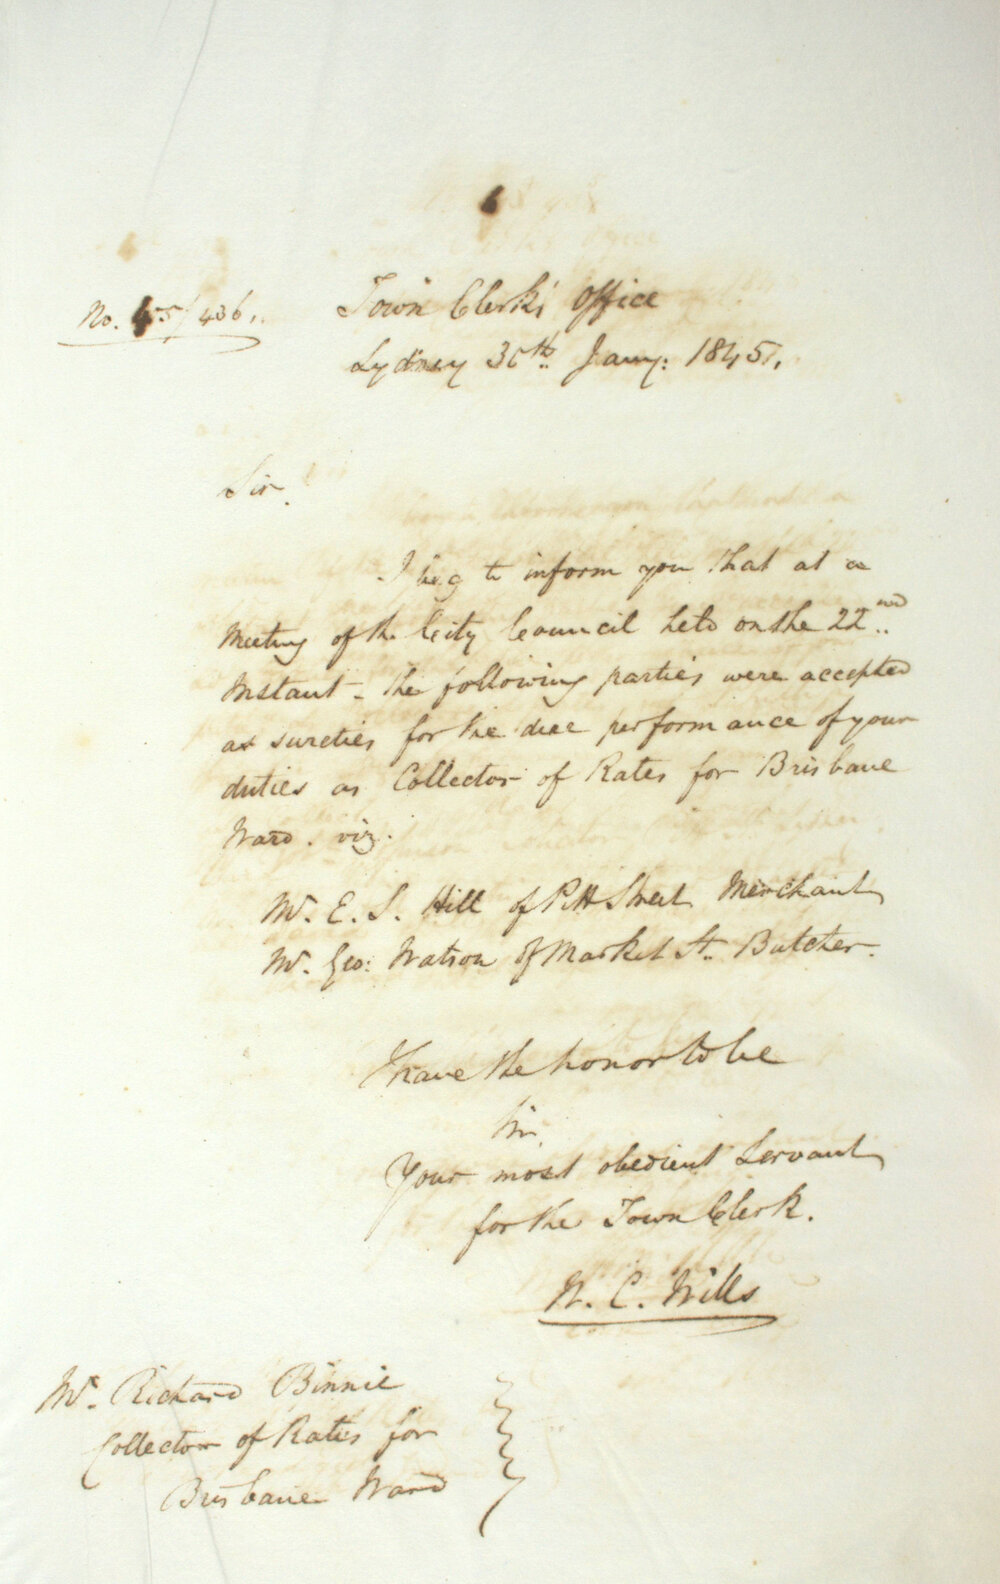 6
No. 45/436.
Town Clerk's Office
Sydney 30th Jany: 1845,
Sir,
I beg to inform you that at a
Meeting of the City Council held on the 22nd
Instant - the following parties were accepted
as sureties for the due performance of your
duties as Collector of Rates for Brisbane
Ward. viz.
Mr. E. S. Hill of Pitt Street Merchant
Mr. Geo: Watson of Market St. Butcher.
I have the honor to be
Sir,
Your most obedient Servant
for the Town Clerk.
W. C. Wills
Mr. Richard Binnie
Collector of Rates for
Brisbane Ward